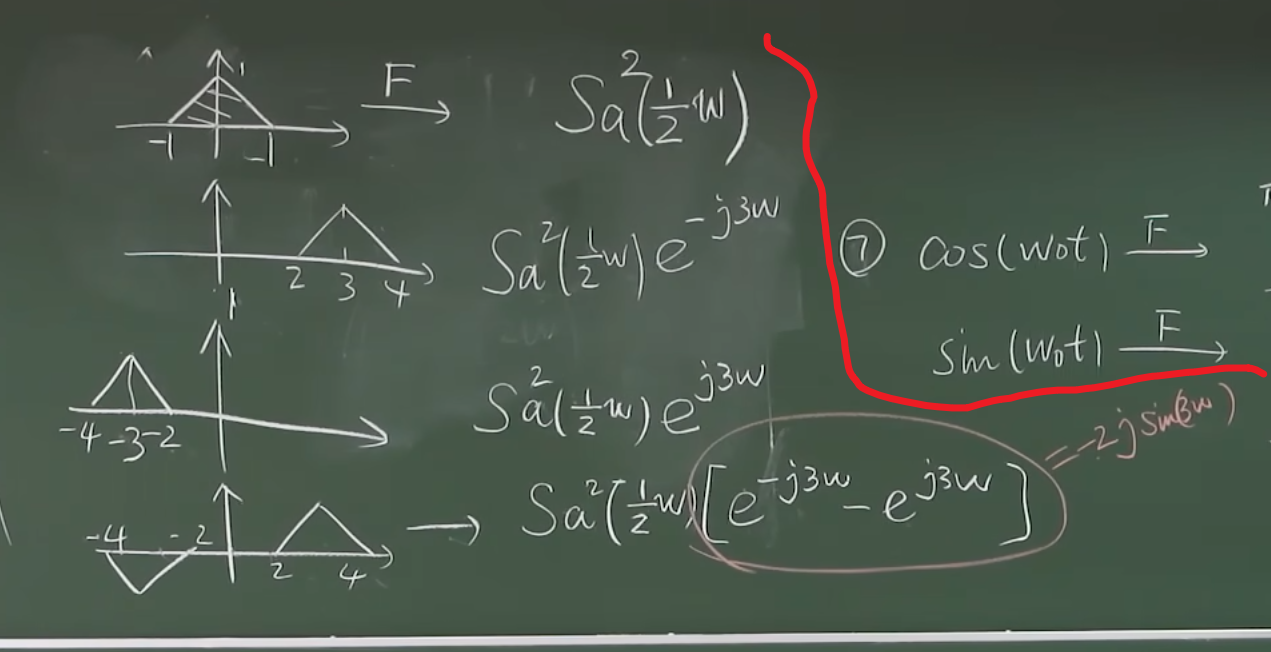 1
-1 1
F
Sa²(½w)
2 3 4
Sa²(½w)e^{-j3w}
-4 -3 -2
Sa²(½w)e^{j3w}
-4 -2 2 4
→ Sa²(½w)[e^{-j3w} - e^{j3w}]
= -2j sin(3w)
⑦ cos(w₀t) F→
sin(w₀t) F→